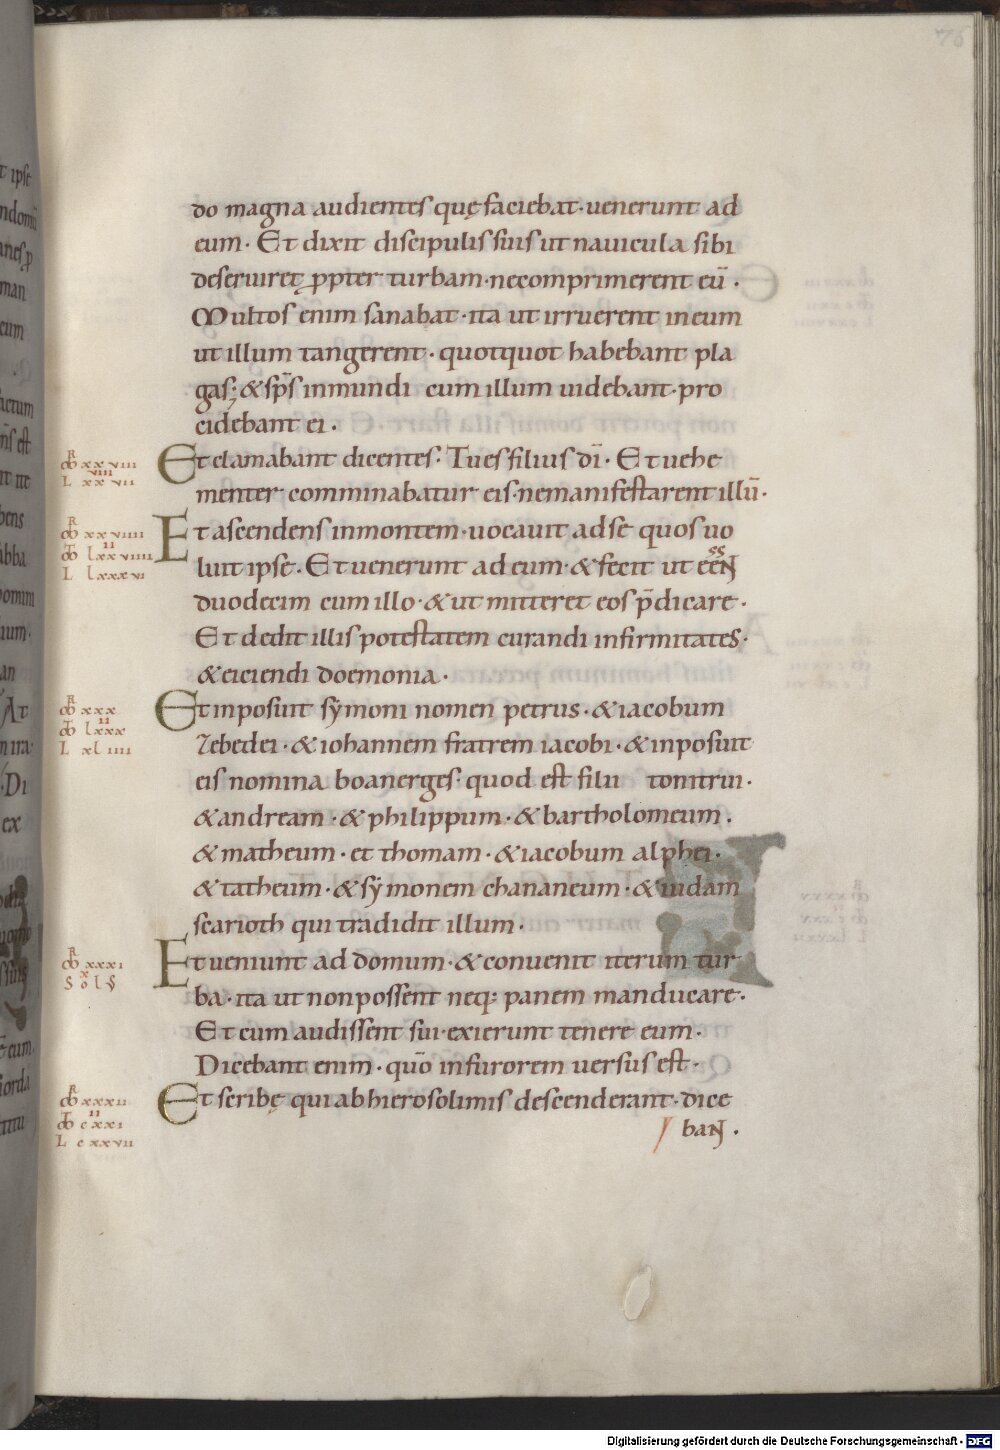 76
do magna audientes quę faciebat · uenerunt ad
eum · Et dixit discipulis suis ut nauicula sibi
deseruiret ꝓpter turbam · ne comprimerent eū ·
Multos enim sanabat · ita ut irruerent in eum
ut illum tangerent · quotquot habebant pla
gas; & sp̄s inmundi cum illum uidebant · pro
cidebant ei ·
Et clamabant dicentes · Tu es filius dī · Et uehe
menter comminabatur eis · ne manifestarent illū ·
Et ascendens in montem · uocauit ad se quos uo
luit ipse · Et uenerunt ad eum · & fecit ut eēnt
duodecim cum illo · & ut mitteret eos p̄dicare ·
Et dedit illis potestatem curandi infirmitates ·
& eiciendi doemonia ·
Et inposuit sẏmoni nomen petrus · & iacobum
zebedei · & iohannem fratrem iacobi · & inposuit
eis nomina boanerges · quod est filii tonitrui ·
& andream · & philippum · & bartholomeum ·
& matheum · et thomam · & iacobum alphei ·
& tatheum · & sẏmonem chananeum · & iudam
scarioth qui tradidit illum ·
Et ueniunt ad domum · & conuenit iterum tur
ba · ita ut non possent neq; panem manducare ·
Et cum audissent sui · exierunt tenere eum ·
Dicebant enim · quō in furorem uersus est ·
Et scribę qui ab hierosolimis descenderant · dice
bant ·
Digitalisierung gefördert durch die Deutsche Forschungsgemeinschaft - DFG